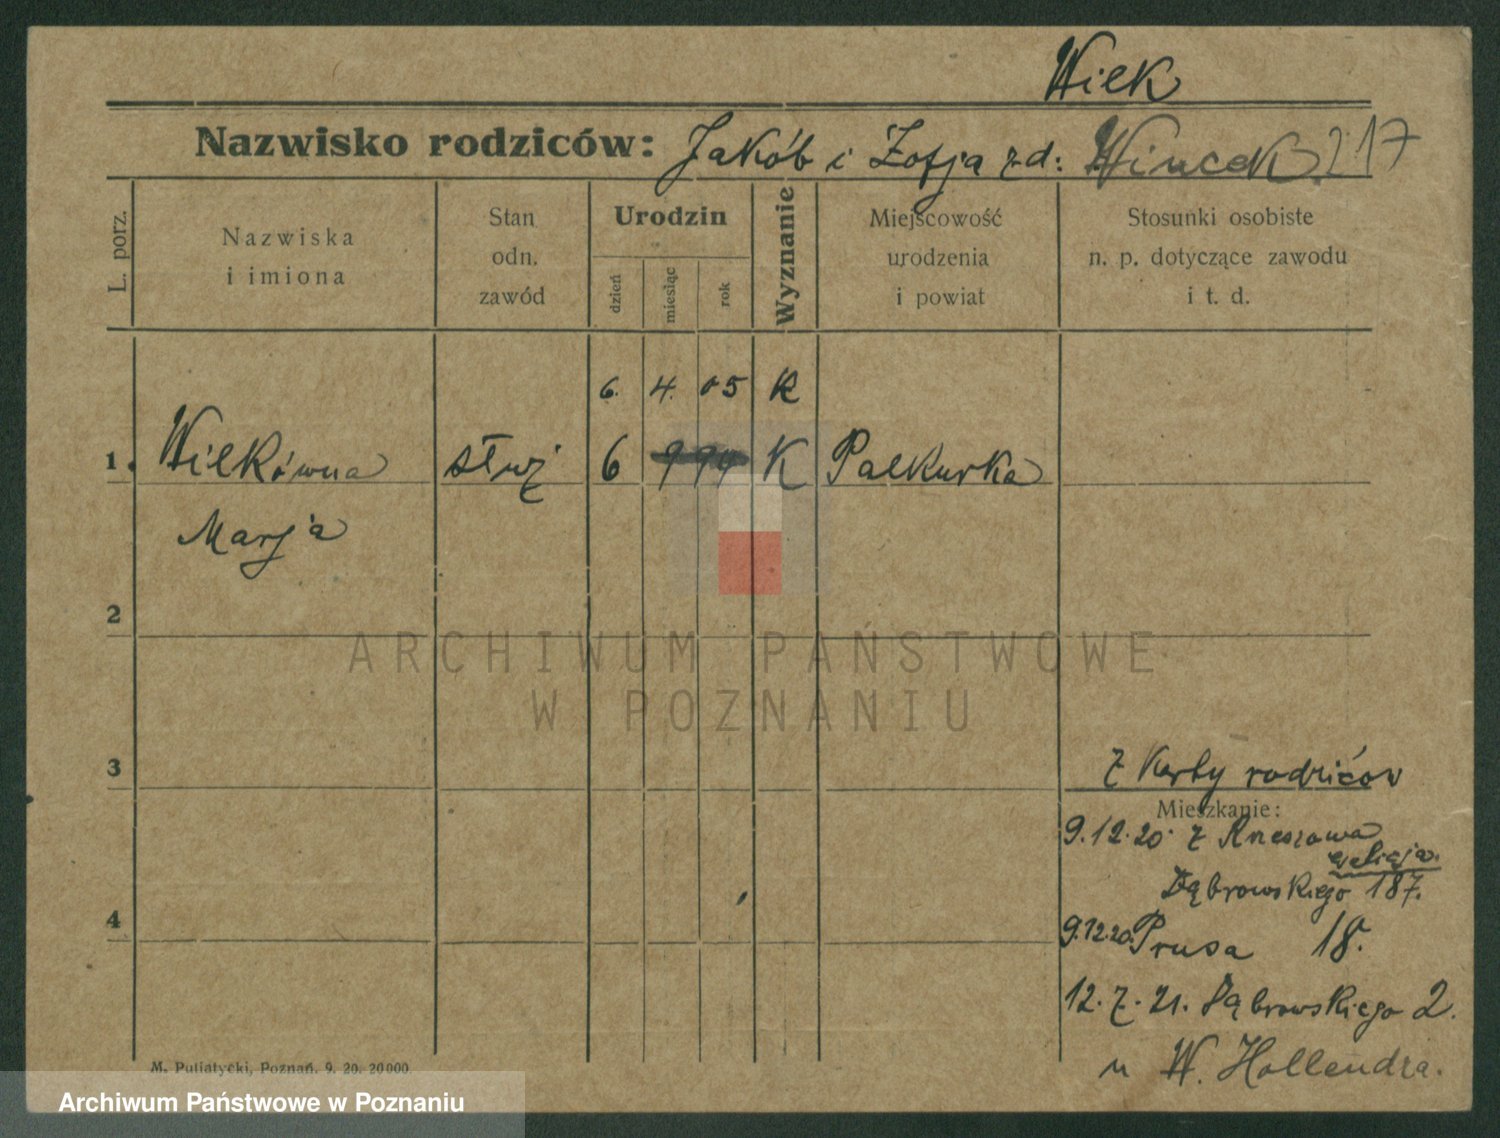 Wilk
Nazwisko rodziców: Jakób i Zofja zd: Wincek 217
L. porz.
Nazwiska
i imiona
Stan
odn.
zawód
Urodzin
dzień
miesiąc
rok
Wyznanie
Miejscowość
urodzenia
i powiat
Stosunki osobiste
n. p. dotyczące zawodu
i t. d.
6. 4. 05 K
1. Wilkówna służ 6 9 94 K Palkurka
Marja
2
ARCHIWUM PAŃSTWOWE
W POZNANIU
3
z karty rodziców
Mieszkanie:
9.12.20 z Rzeszowa
galicja.
Dąbrowskiego 187.
4
9.12.20. Prusa 18.
12. 7. 21. Dąbrowskiego 2.
u W. Hollendra.
M. Putiatycki, Poznań. 9. 20. 20000.
Archiwum Państwowe w Poznaniu